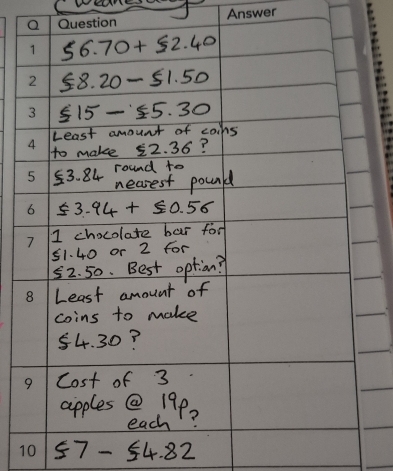 Wednesday
Q Question Answer
1 £6.70 + £2.40
2 £8.20 - £1.50
3 £15 - £5.30
4 Least amount of coins
to make £2.36?
5 £3.84 round to
nearest pound
6 £3.94 + £0.56
7 1 chocolate bar for
£1.40 or 2 for
£2.50. Best option?
8 Least amount of
coins to make
£4.30?
9 Cost of 3
apples @ 19p
each?
10 £7 - £4.82